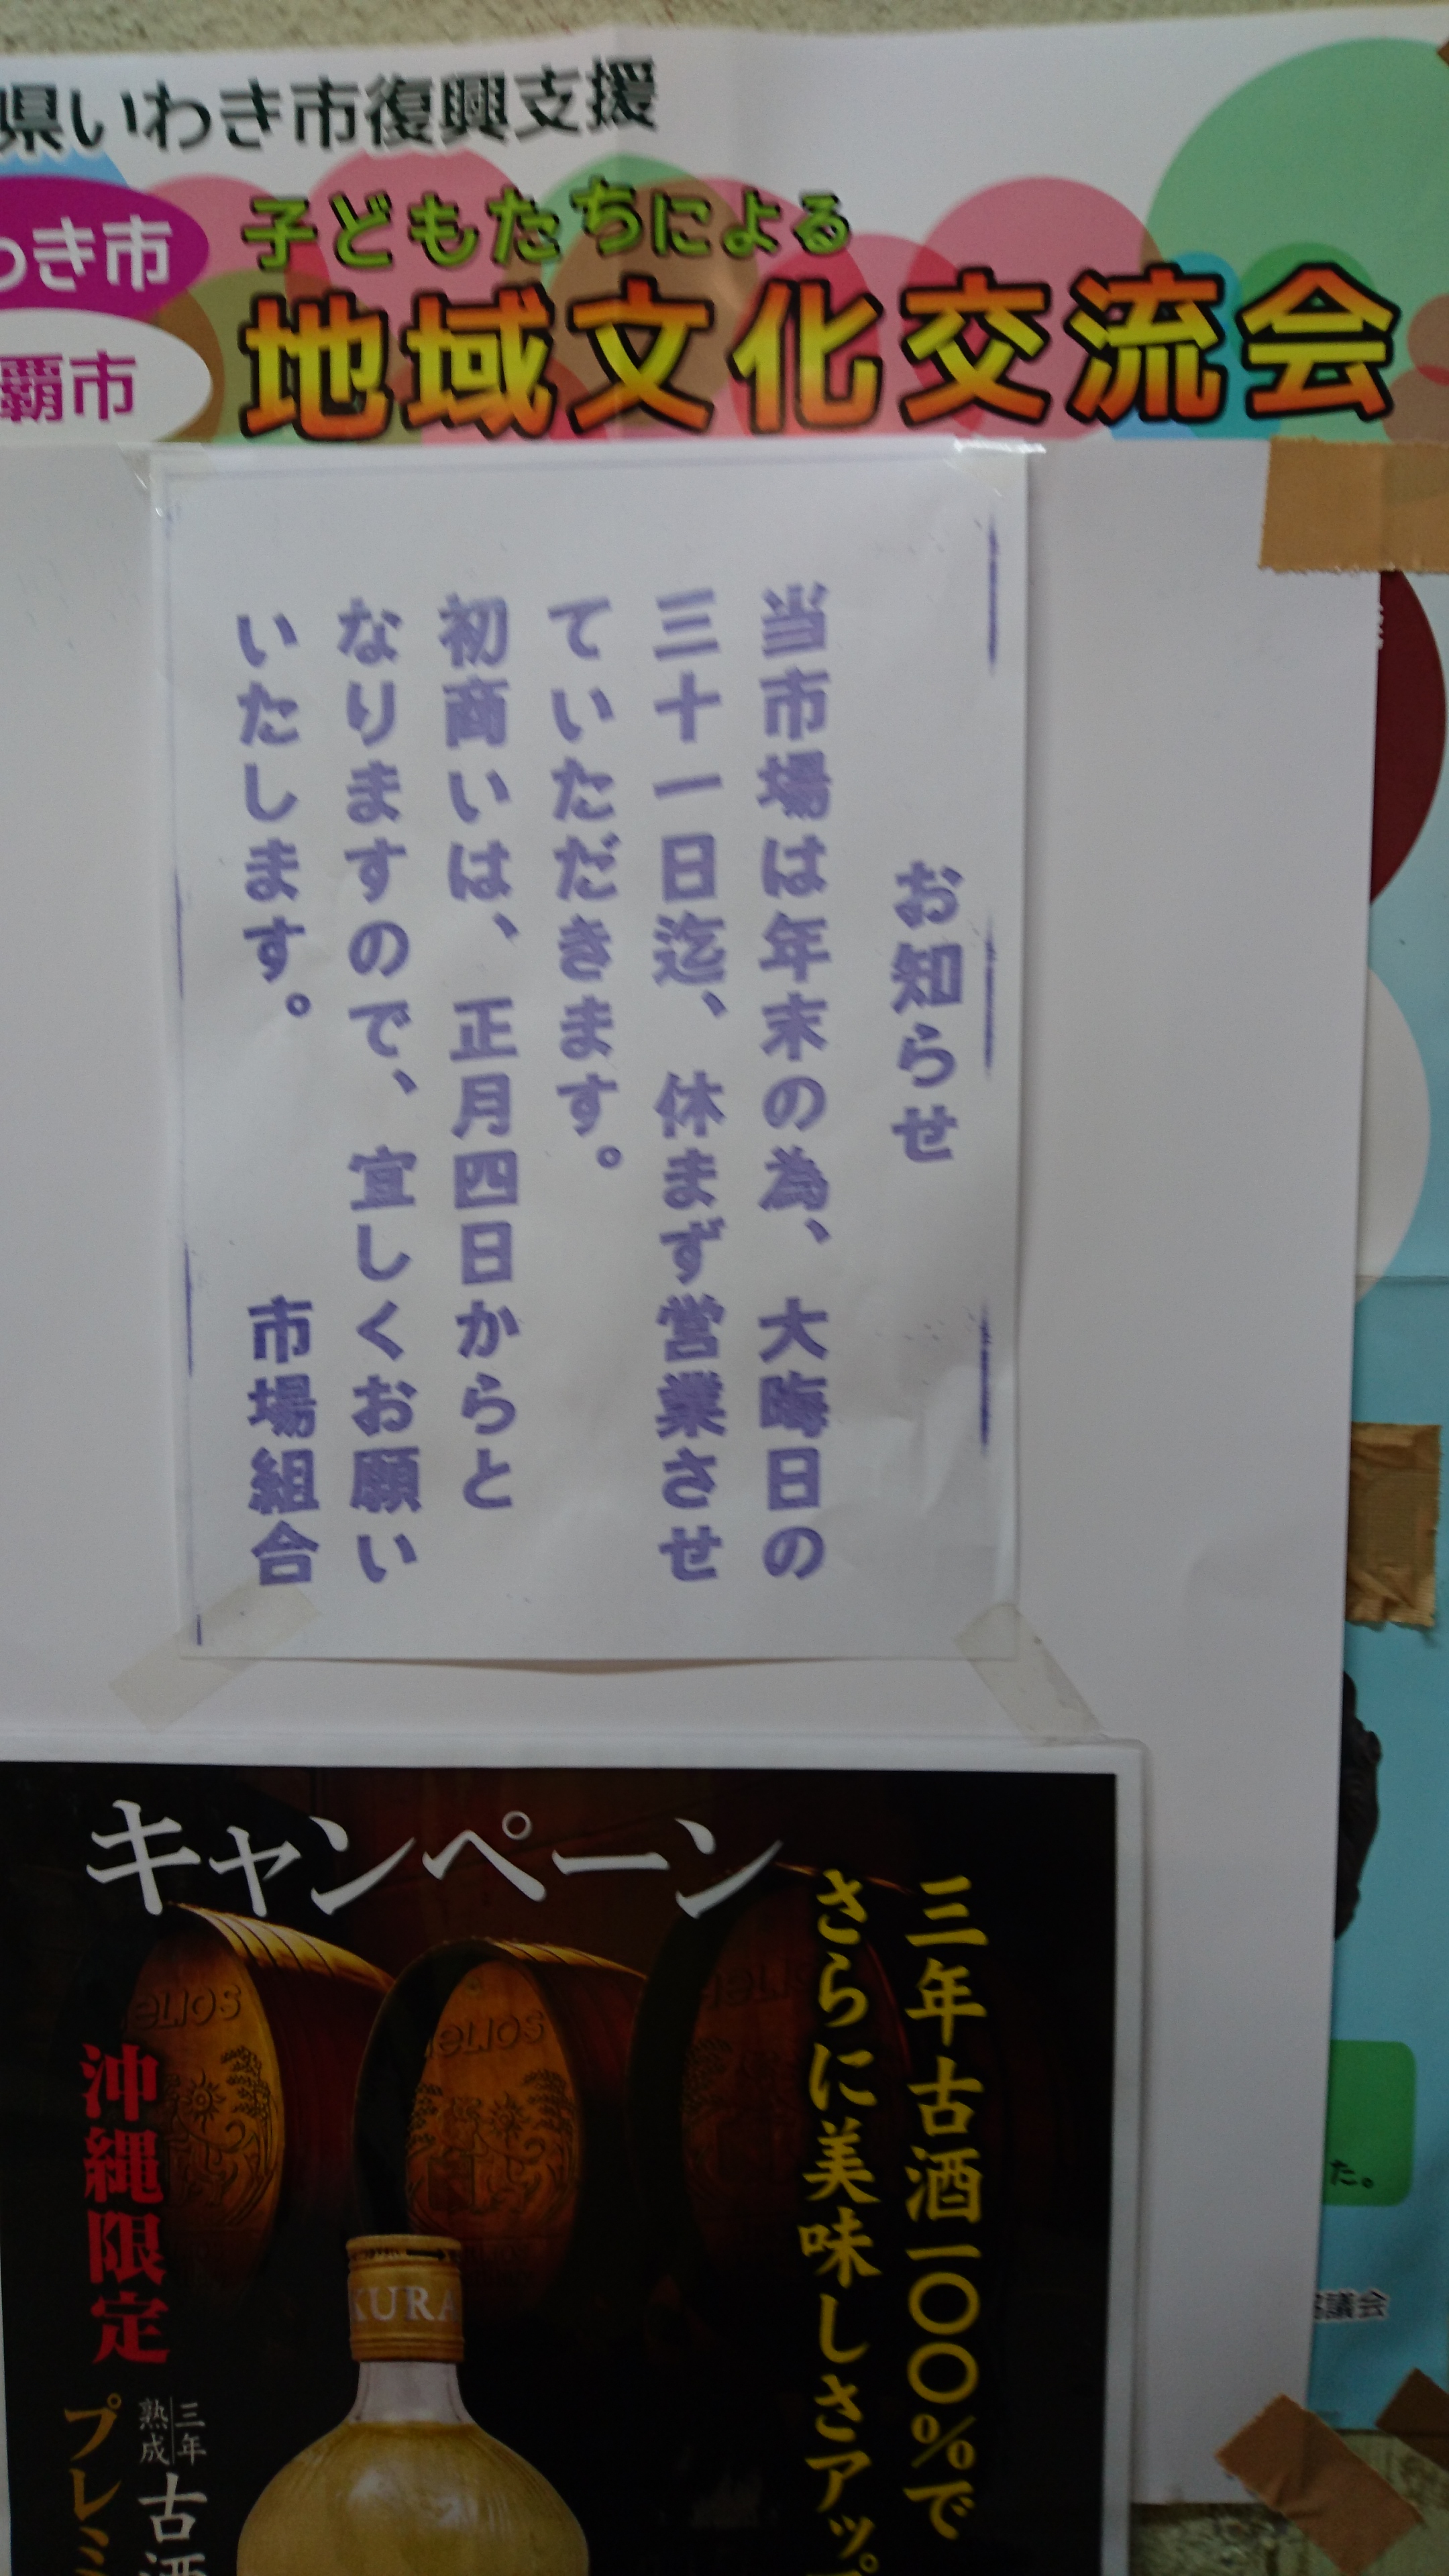 県いわき市復興支援
わき市
覇市
子どもたちによる
地域文化交流会
お知らせ
当市場は年末の為、大晦日の
三十一日迄、休まず営業させ
ていただきます。
初商いは、正月四日からと
なりますので、宜しくお願い
いたします。
市場組合
キャンペーン
三年古酒一〇〇%で
さらに美味しさアップ
HELIOS
HELIOS
HELIOS
沖縄限定
三年
熟成
古酒
プレミ
KURA
た。
協議会